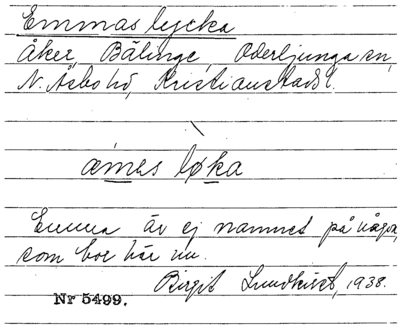 Emmaslycka
Åker, Bälinge, Oderljunga sn,
N. Åsbo hd, Kristianstads l.
æmas løka
Emma är ej namnet på någon,
som bor här nu.
Birgit Lundkvist, 1938.
Nr 5499.